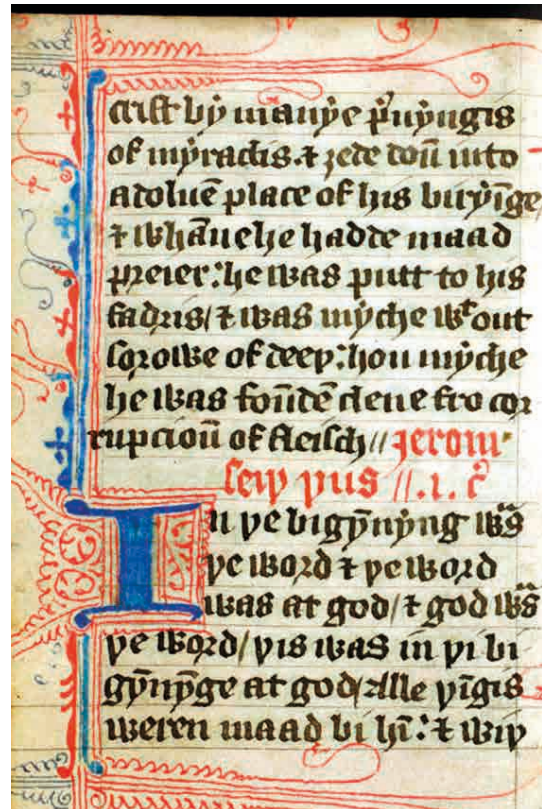 crist bi manye p̉uyngis
of myraclis. ⁊ ȝede doū into
a doluē place of his biryīge/
⁊ whāne he hadde maad
p̉reier: he was putt to his
fadris/ ⁊ was myche wᵗ out
sorowe of deeþ: hou myche
he was foūdē clene fro cor
rupcioū of fleisch// Jerom
seiþ þus //.i. c̉
In þe bigȳnyng wᵃˢ
þe word ⁊ þe word
was at god/ ⁊ god wᵃˢ
þe word/ þis was in þi bi
gȳnynge at god/ Alle þīgis
weren maad bi hī: ⁊ wiþ